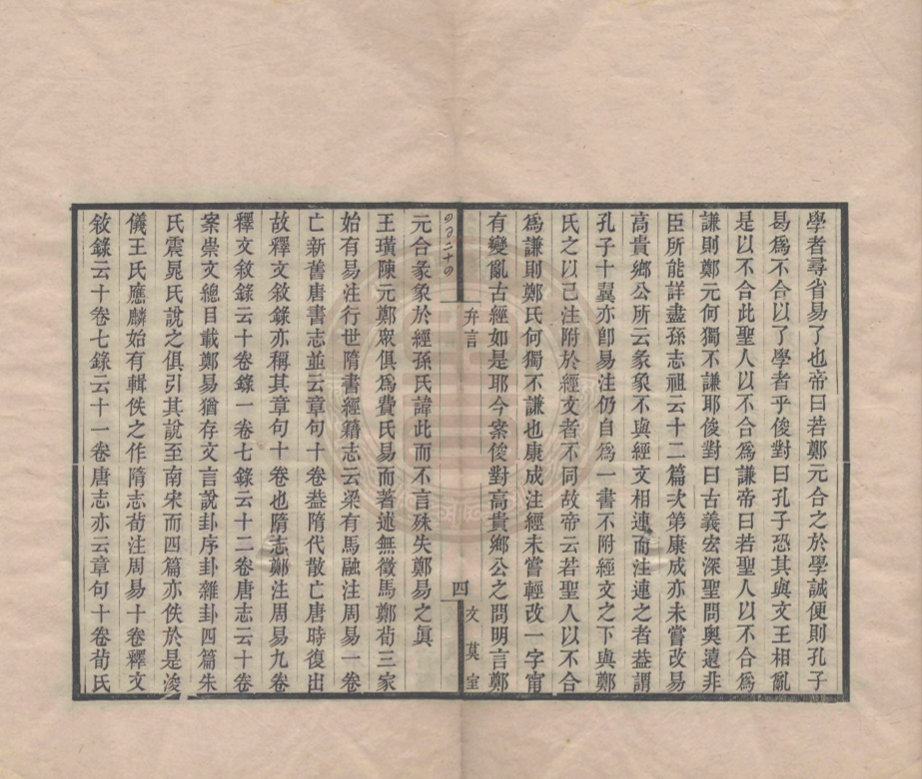 學者尋省易了也帝曰若鄭元合之於學誠便則孔子
曷爲不合以了學者乎俊對曰孔子恐其與文王相亂
是以不合此聖人以不合爲謙帝曰若聖人以不合爲
謙則鄭元何獨不謙耶俊對曰古義宏深聖問奧遠非
臣所能詳盡孫志祖云十二篇次第康成亦未嘗改易
高貴鄉公所云彖象不與經文相連而注連之者葢謂
孔子十翼亦卽易注仍自爲一書不附經文之下與鄭
氏之以己注附於經文者不同故帝云若聖人以不合
爲謙則鄭氏何獨不謙也康成注經未嘗輕改一字甯
有變亂古經如是耶今案俊對高貴鄉公之問明言鄭
弁言
四
元合彖象於經孫氏諱此而不言殊失鄭易之眞
王璜陳元鄭衆俱爲費氏易而著述無徵馬鄭荀三家
始有易注行世隋書經籍志云梁有馬融注周易一卷
亡新舊唐書志並云章句十卷葢隋代散亡唐時復出
故釋文敘錄亦稱其章句十卷也隋志鄭注周易九卷
釋文敘錄云十卷錄一卷七錄云十二卷唐志云十卷
案崇文總目載鄭易猶存文言說卦序卦雜卦四篇朱
氏震晁氏說之俱引其說至南宋而四篇亦佚於是浚
儀王氏應麟始有輯佚之作隋志荀注周易十卷釋文
敘錄云十卷七錄云十一卷唐志亦云章句十卷荀氏